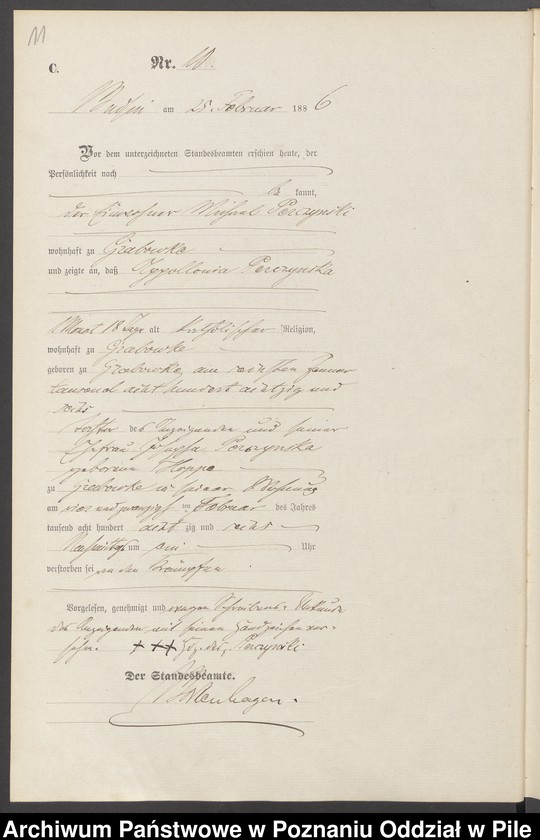 11
C.
Nr.
am 25. Februar 1886
Vor dem unterzeichneten Standesbeamten erschien heute, der
Persönlichkeit nach
kannt,
der Einwohner Michael Perczynski
wohnhaft zu Grabowke
und zeigte an, daß Appollonia Perczynska
1 Monat 18 Tage alt katholischer Religion,
wohnhaft zu Grabowke
geboren zu Grabowke, am Januar
tausend acht hundert achtzig und
sechs
Tochter des Anzeigenden und seiner
Ehefrau Josepha Perczynska
geborene Hoppe
zu Grabowke in seiner Wohnung
am vier und zwanzigsten Februar des Jahres
tausend acht hundert acht zig und sechs
Nachmittags um Uhr
verstorben sei an den Krämpfen
Vorgelesen, genehmigt und wegen Schreibens-Unkunde
des Anzeigenden mit seinen Handzeichen ver-
sehn. +++ Hdz. des, Perczynski
Der Standesbeamte.
Archiwum Państwowe w Poznaniu Oddział w Pile